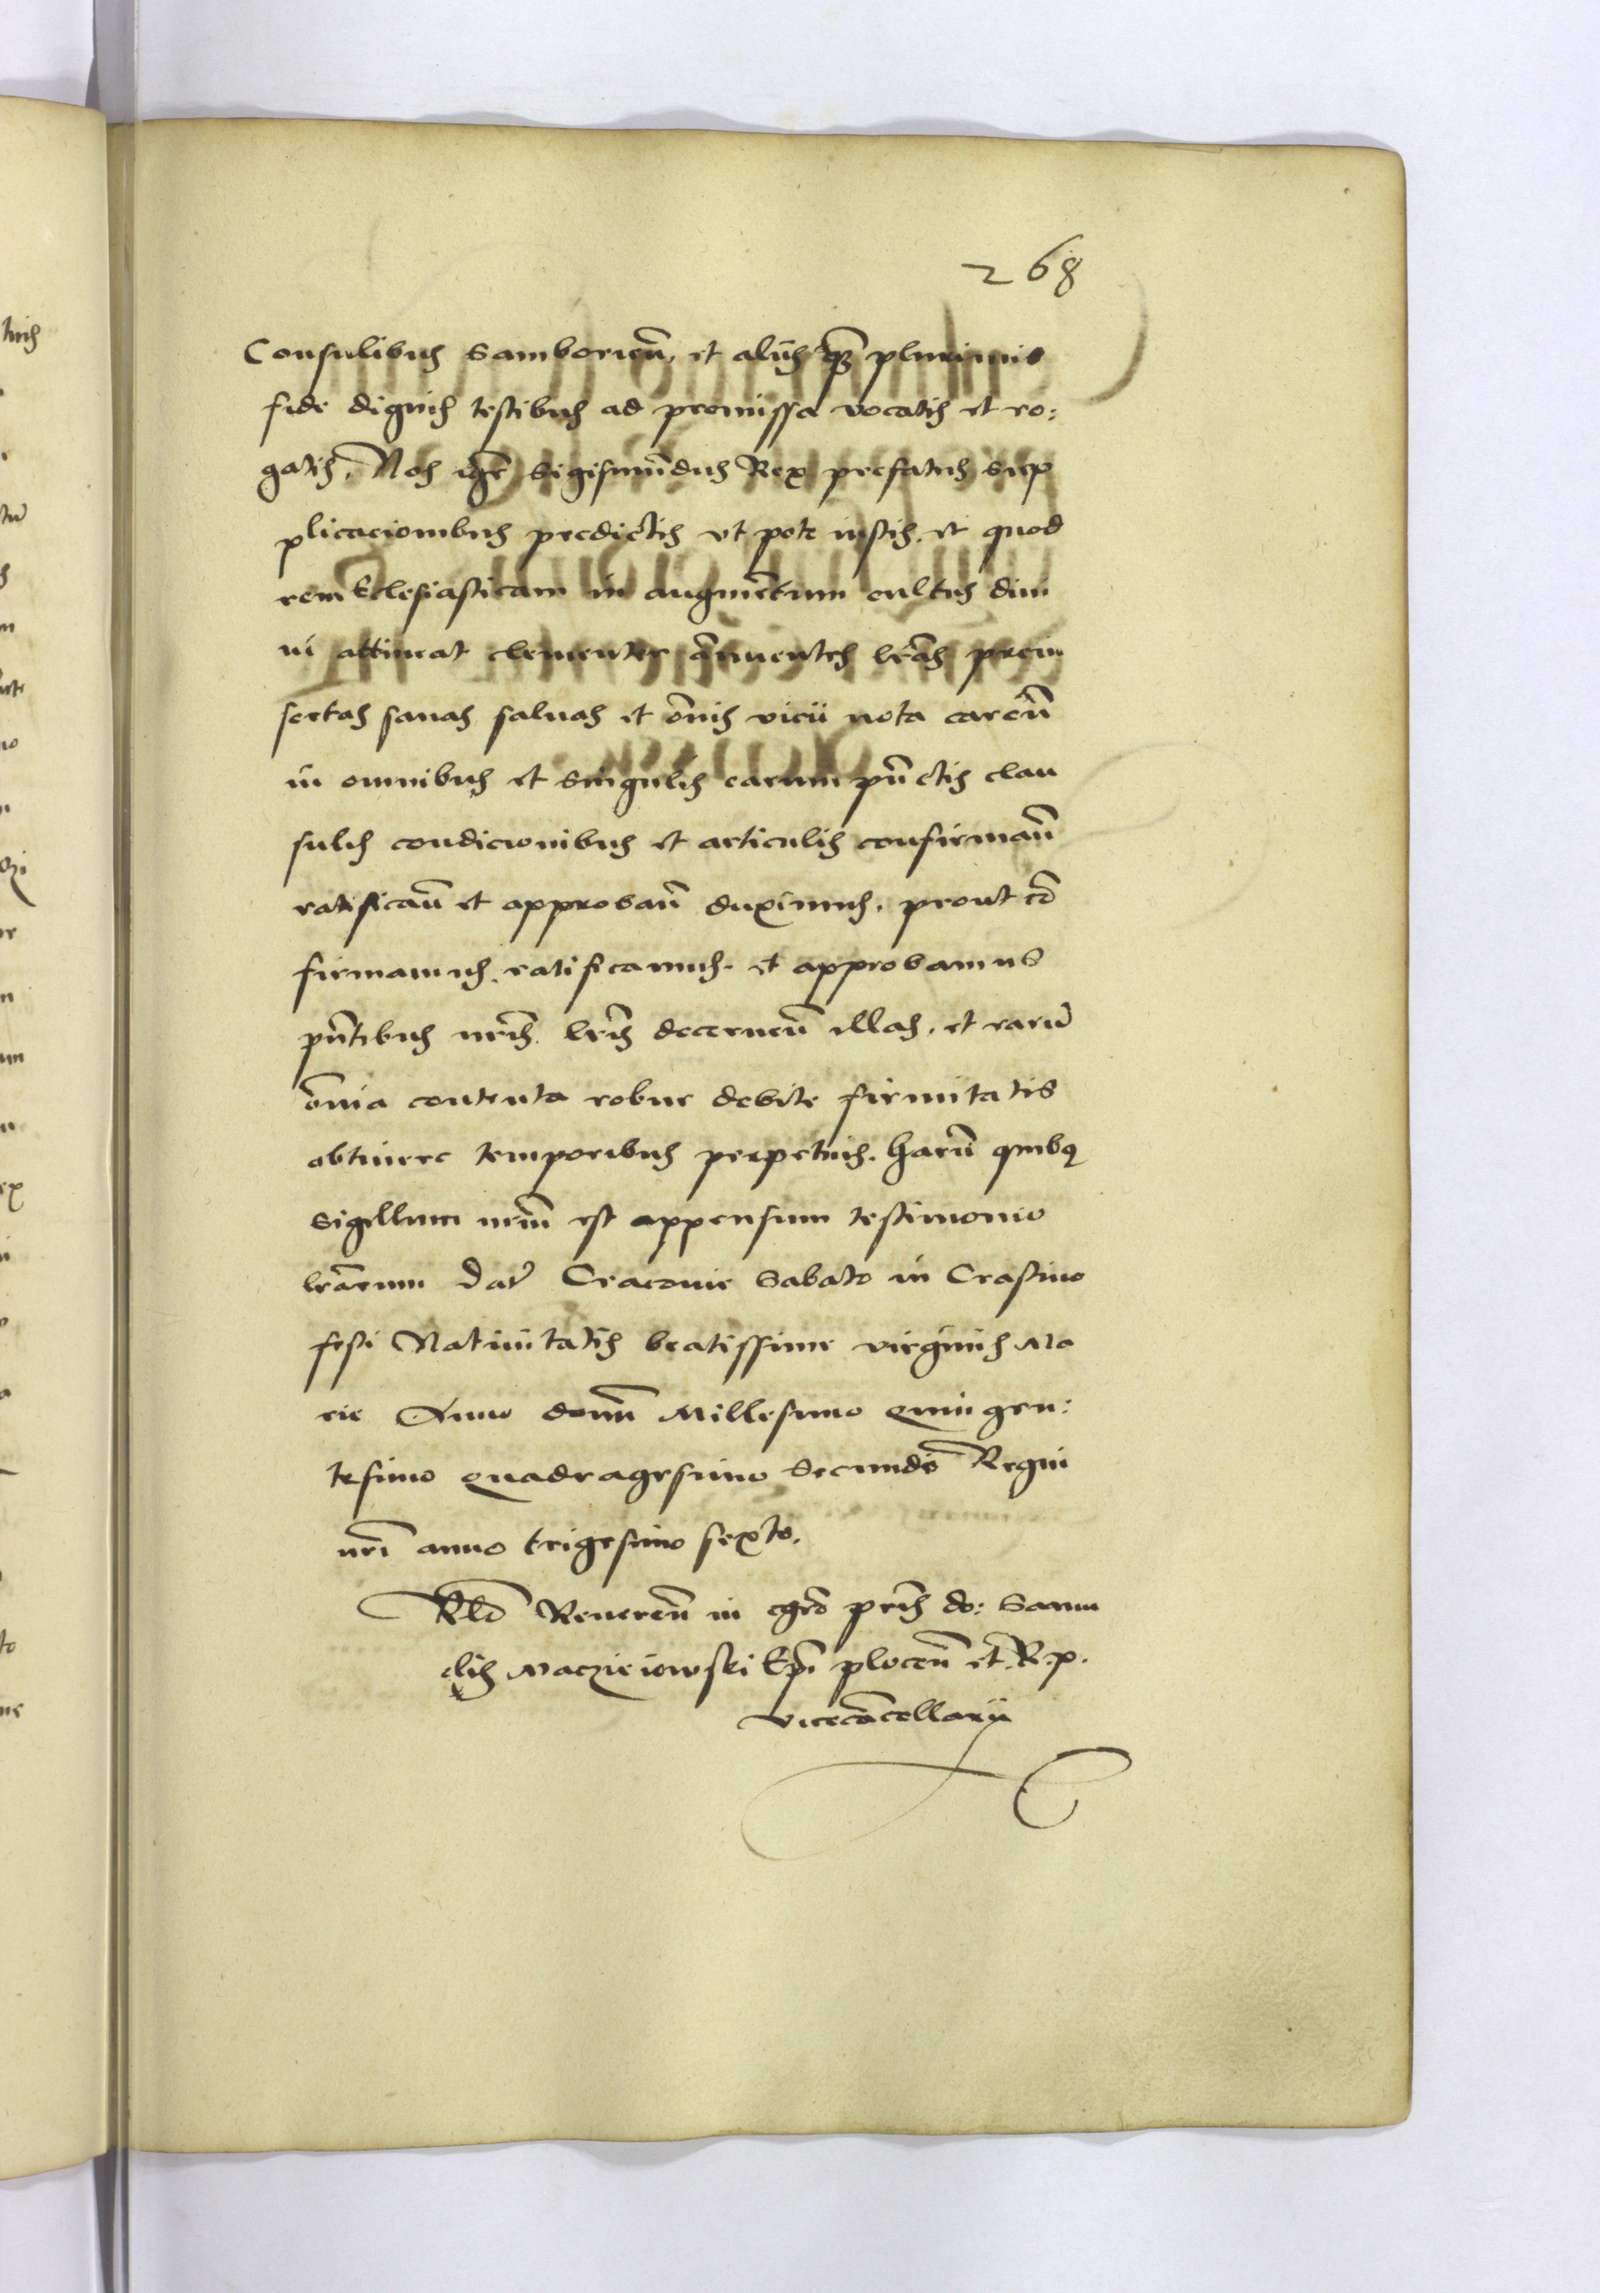 268
Consulibus Samborien, et aliis quam plurimis
fide dignis testibus ad premissa vocatis et ro:
gatis. Nos igr Sigismundus Rex prefatus sup
plicacionibus predictis ut pote iustis. et quod
rem Ecclesiasticam in augmentum cultus divi
ni attineat clementer annuentes lras prein
sertas sanas salvas et omis vicii nota caren
in omnibus et singulis earum punctis clau
sulis condicionibus et articulis confirman
ratifican et approban duximus. prout con
firmamus. ratificamus. et approbamus
pntibus nris. lris decernen illas. et earum
omia contenta robur debite firmitatis
obtinere temporibus perpetuis. Harum quibus
Sigillum nrum est appensum testimonio
lrarum Dat Cracovie Sabato in Crastino
festi Nativitatis beatissime virginis Ma
rie Anno domini Millesimo quingen:
tesimo quadragesimo Secundo Regni
nri anno trigesimo sexto.
Rlo Reveren in chro pris do: Samu
elis Macziejowski Epi plocen et R. p.
vicecancellarii